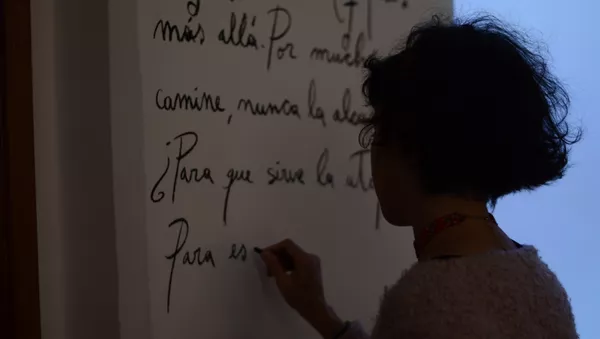 más allá. Por mucho
camine, nunca la
¿Para que sirve la
Para es